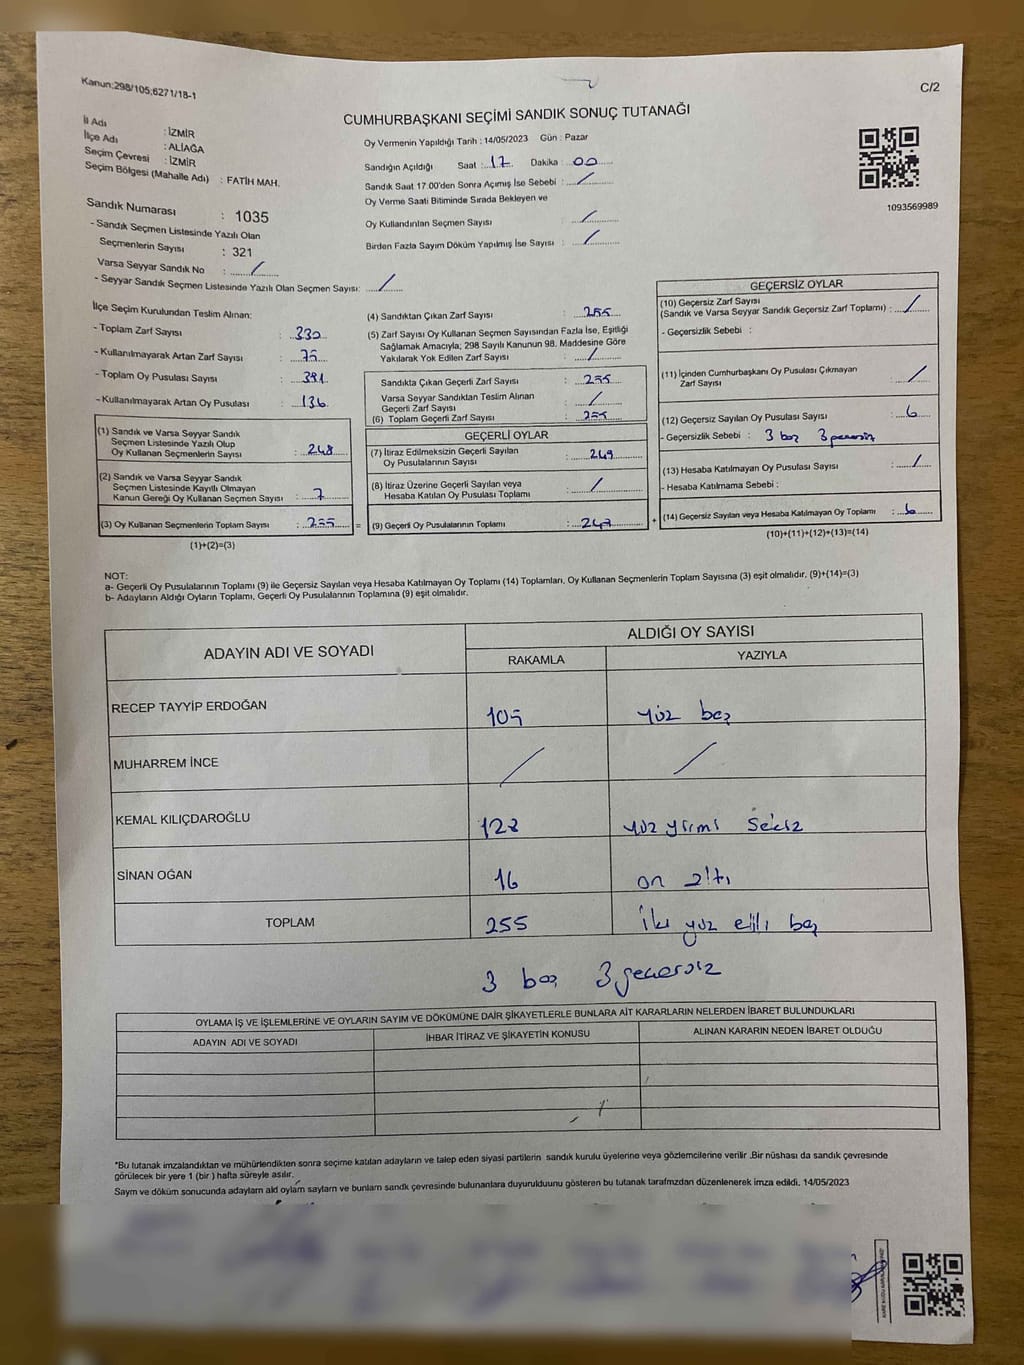 Kanun:298/105;6271/18-1
C/2
CUMHURBAŞKANI SEÇİMİ SANDIK SONUÇ TUTANAĞI
İl Adı : İZMİR
İlçe Adı : ALİAĞA
Seçim Çevresi : İZMİR
Seçim Bölgesi (Mahalle Adı) : FATİH MAH.
Sandık Numarası : 1035
- Sandık Seçmen Listesinde Yazılı Olan
Seçmenlerin Sayısı : 321
Varsa Seyyar Sandık No : /
- Seyyar Sandık Seçmen Listesinde Yazılı Olan Seçmen Sayısı: /
Oy Vermenin Yapıldığı Tarih : 14/05/2023 Gün : Pazar
Sandığın Açıldığı Saat : 17 Dakika : 00
Sandık Saat 17.00'den Sonra Açımış İse Sebebi : /
Oy Verme Saati Bitiminde Sırada Bekleyen ve
Oy Kullandırılan Seçmen Sayısı : /
Birden Fazla Sayım Döküm Yapılmış İse Sayısı : /
1093569989
İlçe Seçim Kurulundan Teslim Alınan:
- Toplam Zarf Sayısı : 330
- Kullanılmayarak Artan Zarf Sayısı : 75
- Toplam Oy Pusulası Sayısı : 391
- Kullanılmayarak Artan Oy Pusulası : 136
(1) Sandık ve Varsa Seyyar Sandık
Seçmen Listesinde Yazılı Olup
Oy Kullanan Seçmenlerin Sayısı : 248
(2) Sandık ve Varsa Seyyar Sandık
Seçmen Listesinde Kayıtlı Olmayan
Kanun Gereği Oy Kullanan Seçmen Sayısı : 7
(3) Oy Kullanan Seçmenlerin Toplam Sayısı : 255 =
(1)+(2)=(3)
(4) Sandıktan Çıkan Zarf Sayısı : 255
(5) Zarf Sayısı Oy Kullanan Seçmen Sayısından Fazla İse, Eşitliği
Sağlamak Amacıyla; 298 Sayılı Kanunun 98. Maddesine Göre
Yakılarak Yok Edilen Zarf Sayısı : /
Sandıkta Çıkan Geçerli Zarf Sayısı : 255
Varsa Seyyar Sandıktan Teslim Alınan
Geçerli Zarf Sayısı : /
(6) Toplam Geçerli Zarf Sayısı : 255
GEÇERLİ OYLAR
(7) İtiraz Edilmeksizin Geçerli Sayılan
Oy Pusulalarının Sayısı : 249
(8) İtiraz Üzerine Geçerli Sayılan veya
Hesaba Katılan Oy Pusulası Toplamı : /
(9) Geçerli Oy Pusulalarının Toplamı : 249 +
GEÇERSİZ OYLAR
(10) Geçersiz Zarf Sayısı
(Sandık ve Varsa Seyyar Sandık Geçersiz Zarf Toplamı) : /
- Geçersizlik Sebebi :
(11) İçinden Cumhurbaşkanı Oy Pusulası Çıkmayan
Zarf Sayısı : /
(12) Geçersiz Sayılan Oy Pusulası Sayısı : 6
- Geçersizlik Sebebi : 3 boş 3 geçersiz
(13) Hesaba Katılmayan Oy Pusulası Sayısı : /
- Hesaba Katılmama Sebebi :
(14) Geçersiz Sayılan veya Hesaba Katılmayan Oy Toplamı : 6
(10)+(11)+(12)+(13)=(14)
NOT:
a- Geçerli Oy Pusulalarının Toplamı (9) ile Geçersiz Sayılan veya Hesaba Katılmayan Oy Toplamı (14) Toplamları, Oy Kullanan Seçmenlerin Toplam Sayısına (3) eşit olmalıdır. (9)+(14)=(3)
b- Adayların Aldığı Oyların Toplamı, Geçerli Oy Pusulalarının Toplamına (9) eşit olmalıdır.
ADAYIN ADI VE SOYADI ALDIĞI OY SAYISI
RAKAMLA YAZIYLA
RECEP TAYYİP ERDOĞAN 105 yüz beş
MUHARREM İNCE / /
KEMAL KILIÇDAROĞLU 128 yüz yirmi sekiz
SİNAN OĞAN 16 on altı
TOPLAM 255 iki yüz elli beş
3 boş 3 geçersiz
OYLAMA İŞ VE İŞLEMLERİNE VE OYLARIN SAYIM VE DÖKÜMÜNE DAİR ŞİKAYETLERLE BUNLARA AİT KARARLARIN NELERDEN İBARET BULUNDUKLARI
ADAYIN ADI VE SOYADI İHBAR İTİRAZ VE ŞİKAYETİN KONUSU ALINAN KARARIN NEDEN İBARET OLDUĞU
*Bu tutanak imzalandıktan ve mühürlendikten sonra seçime katılan adayların ve talep eden siyasi partilerin sandık kurulu üyelerine veya gözlemcilerine verilir .Bir nüshası da sandık çevresinde
görülecek bir yere 1 (bir ) hafta süreyle asılır.
Saym ve döküm sonucunda adaylarn ald oylarn saylarn ve bunlarn sandk çevresinde bulunanlara duyurulduunu gösteren bu tutanak tarafmzdan düzenlenerek imza edildi. 14/05/2023